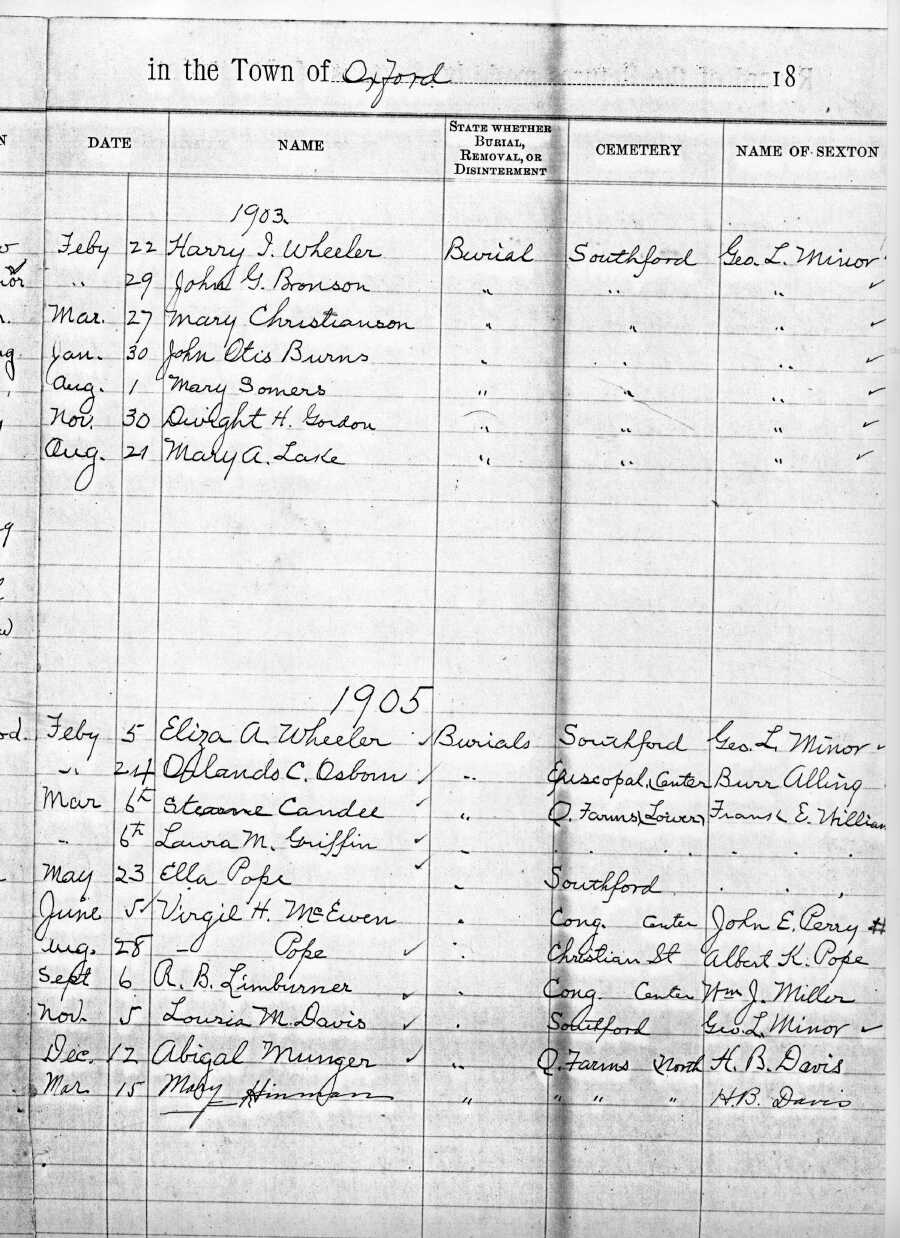 in the Town of Oxford 18
DATE NAME STATE WHETHER BURIAL, REMOVAL, OR DISINTERMENT CEMETERY NAME OF SEXTON
1903.
Feby 22 Harry I. Wheeler Burial Southford Geo. L. Minor
" 29 John G. Bronson " " " ✓
Mar. 27 Mary Christianson " " " ✓
Jan. 30 John Otis Burns " " " ✓
Aug. 1 Mary Somers " " " ✓
Nov. 30 Dwight H. Gordon " " " ✓
Aug. 21 Mary A. Lake " " " ✓
1905
Feby 5 Eliza A. Wheeler ✓ Burials Southford Geo. L. Minor ✓
" 24 Orlando C. Osborn ✓ " Episcopal, Center Burr Alling
Mar 6th Stearne Candee ✓ " Q. Farms (Lower) Frank E. William
" 6th Laura M. Griffin ✓ " " " " " " "
May 23 Ella Pope ✓ " Southford " " "
June 5 ✓ Virgil H. McEwen " Cong. Center John E. Perry #
Aug. 28 — Pope ✓ " Christian St Albert K. Pope
Sept 6 R. B. Limburner ✓ " Cong. Center Wm J. Miller
Nov. 5 Louria M. Davis ✓ " Southford Geo. L. Minor ✓
Dec. 12 Abigal Munger ✓ " Q. Farms North H. B. Davis
Mar 15 Mary Hinman " " " " H. B. Davis